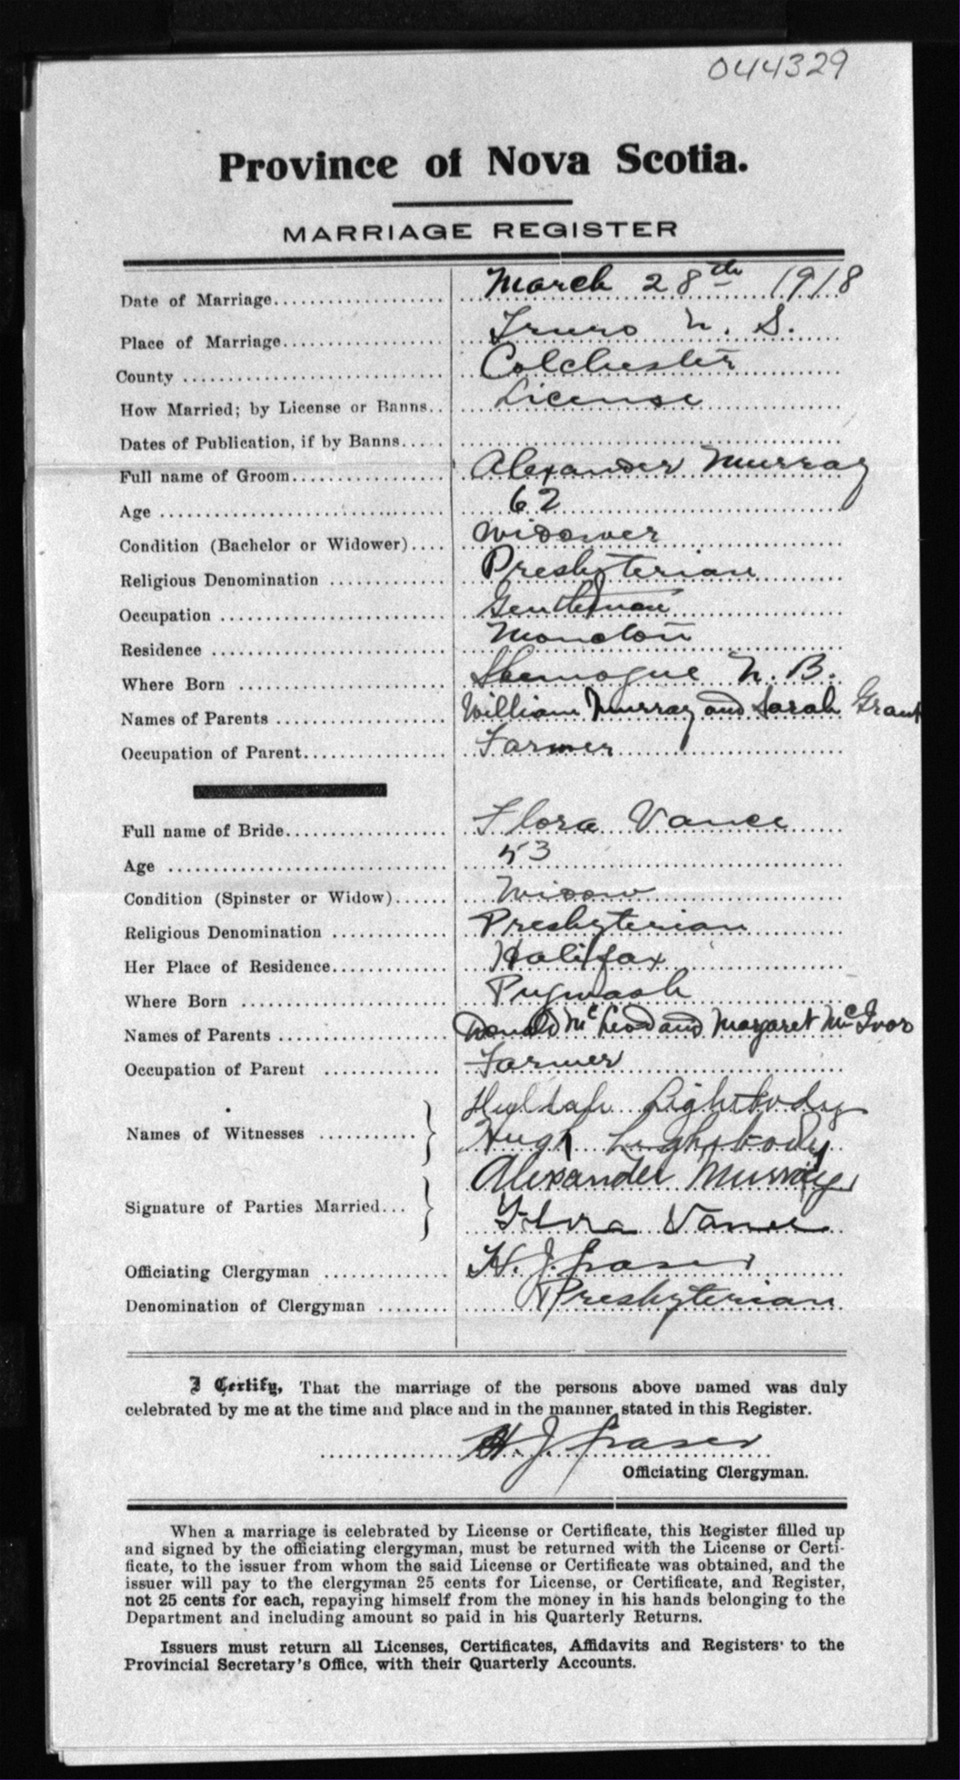 044329
Province of Nova Scotia.
MARRIAGE REGISTER
Date of Marriage.................... March 28th 1918
Place of Marriage................... Truro N. S.
County .............................. Colchester
How Married; by License or Banns.. License
Dates of Publication, if by Banns.....
Full name of Groom.................. Alexander Murray
Age ................................. 62
Condition (Bachelor or Widower).... Widower
Religious Denomination ............. Presbyterian
Occupation .......................... Gentleman
Residence ........................... Moncton
Where Born ......................... Shemogue N. B.
Names of Parents ................... William Murray and Sarah Grant
Occupation of Parent................ Farmer
Full name of Bride................... Flora Vance
Age ................................. 53
Condition (Spinster or Widow)...... Widow
Religious Denomination ............. Presbyterian
Her Place of Residence.............. Halifax
Where Born ......................... Pugwash
Names of Parents ................... Donald McLeod and Margaret McIvor
Occupation of Parent ............... Farmer
Huldah Lightbody
Names of Witnesses ............ Hugh Lightbody
Alexander Murray
Signature of Parties Married... Flora Vance
Officiating Clergyman .............. H. J. Fraser
Denomination of Clergyman ........ Presbyterian
I Certify, That the marriage of the persons above named was duly
celebrated by me at the time and place and in the manner stated in this Register.
H. J. Fraser
Officiating Clergyman.
When a marriage is celebrated by License or Certificate, this Register filled up
and signed by the officiating clergyman, must be returned with the License or Certi-
ficate, to the issuer from whom the said License or Certificate was obtained, and the
issuer will pay to the clergyman 25 cents for License, or Certificate, and Register,
not 25 cents for each, repaying himself from the money in his hands belonging to the
Department and including amount so paid in his Quarterly Returns.
Issuers must return all Licenses, Certificates, Affidavits and Registers to the
Provincial Secretary's Office, with their Quarterly Accounts.